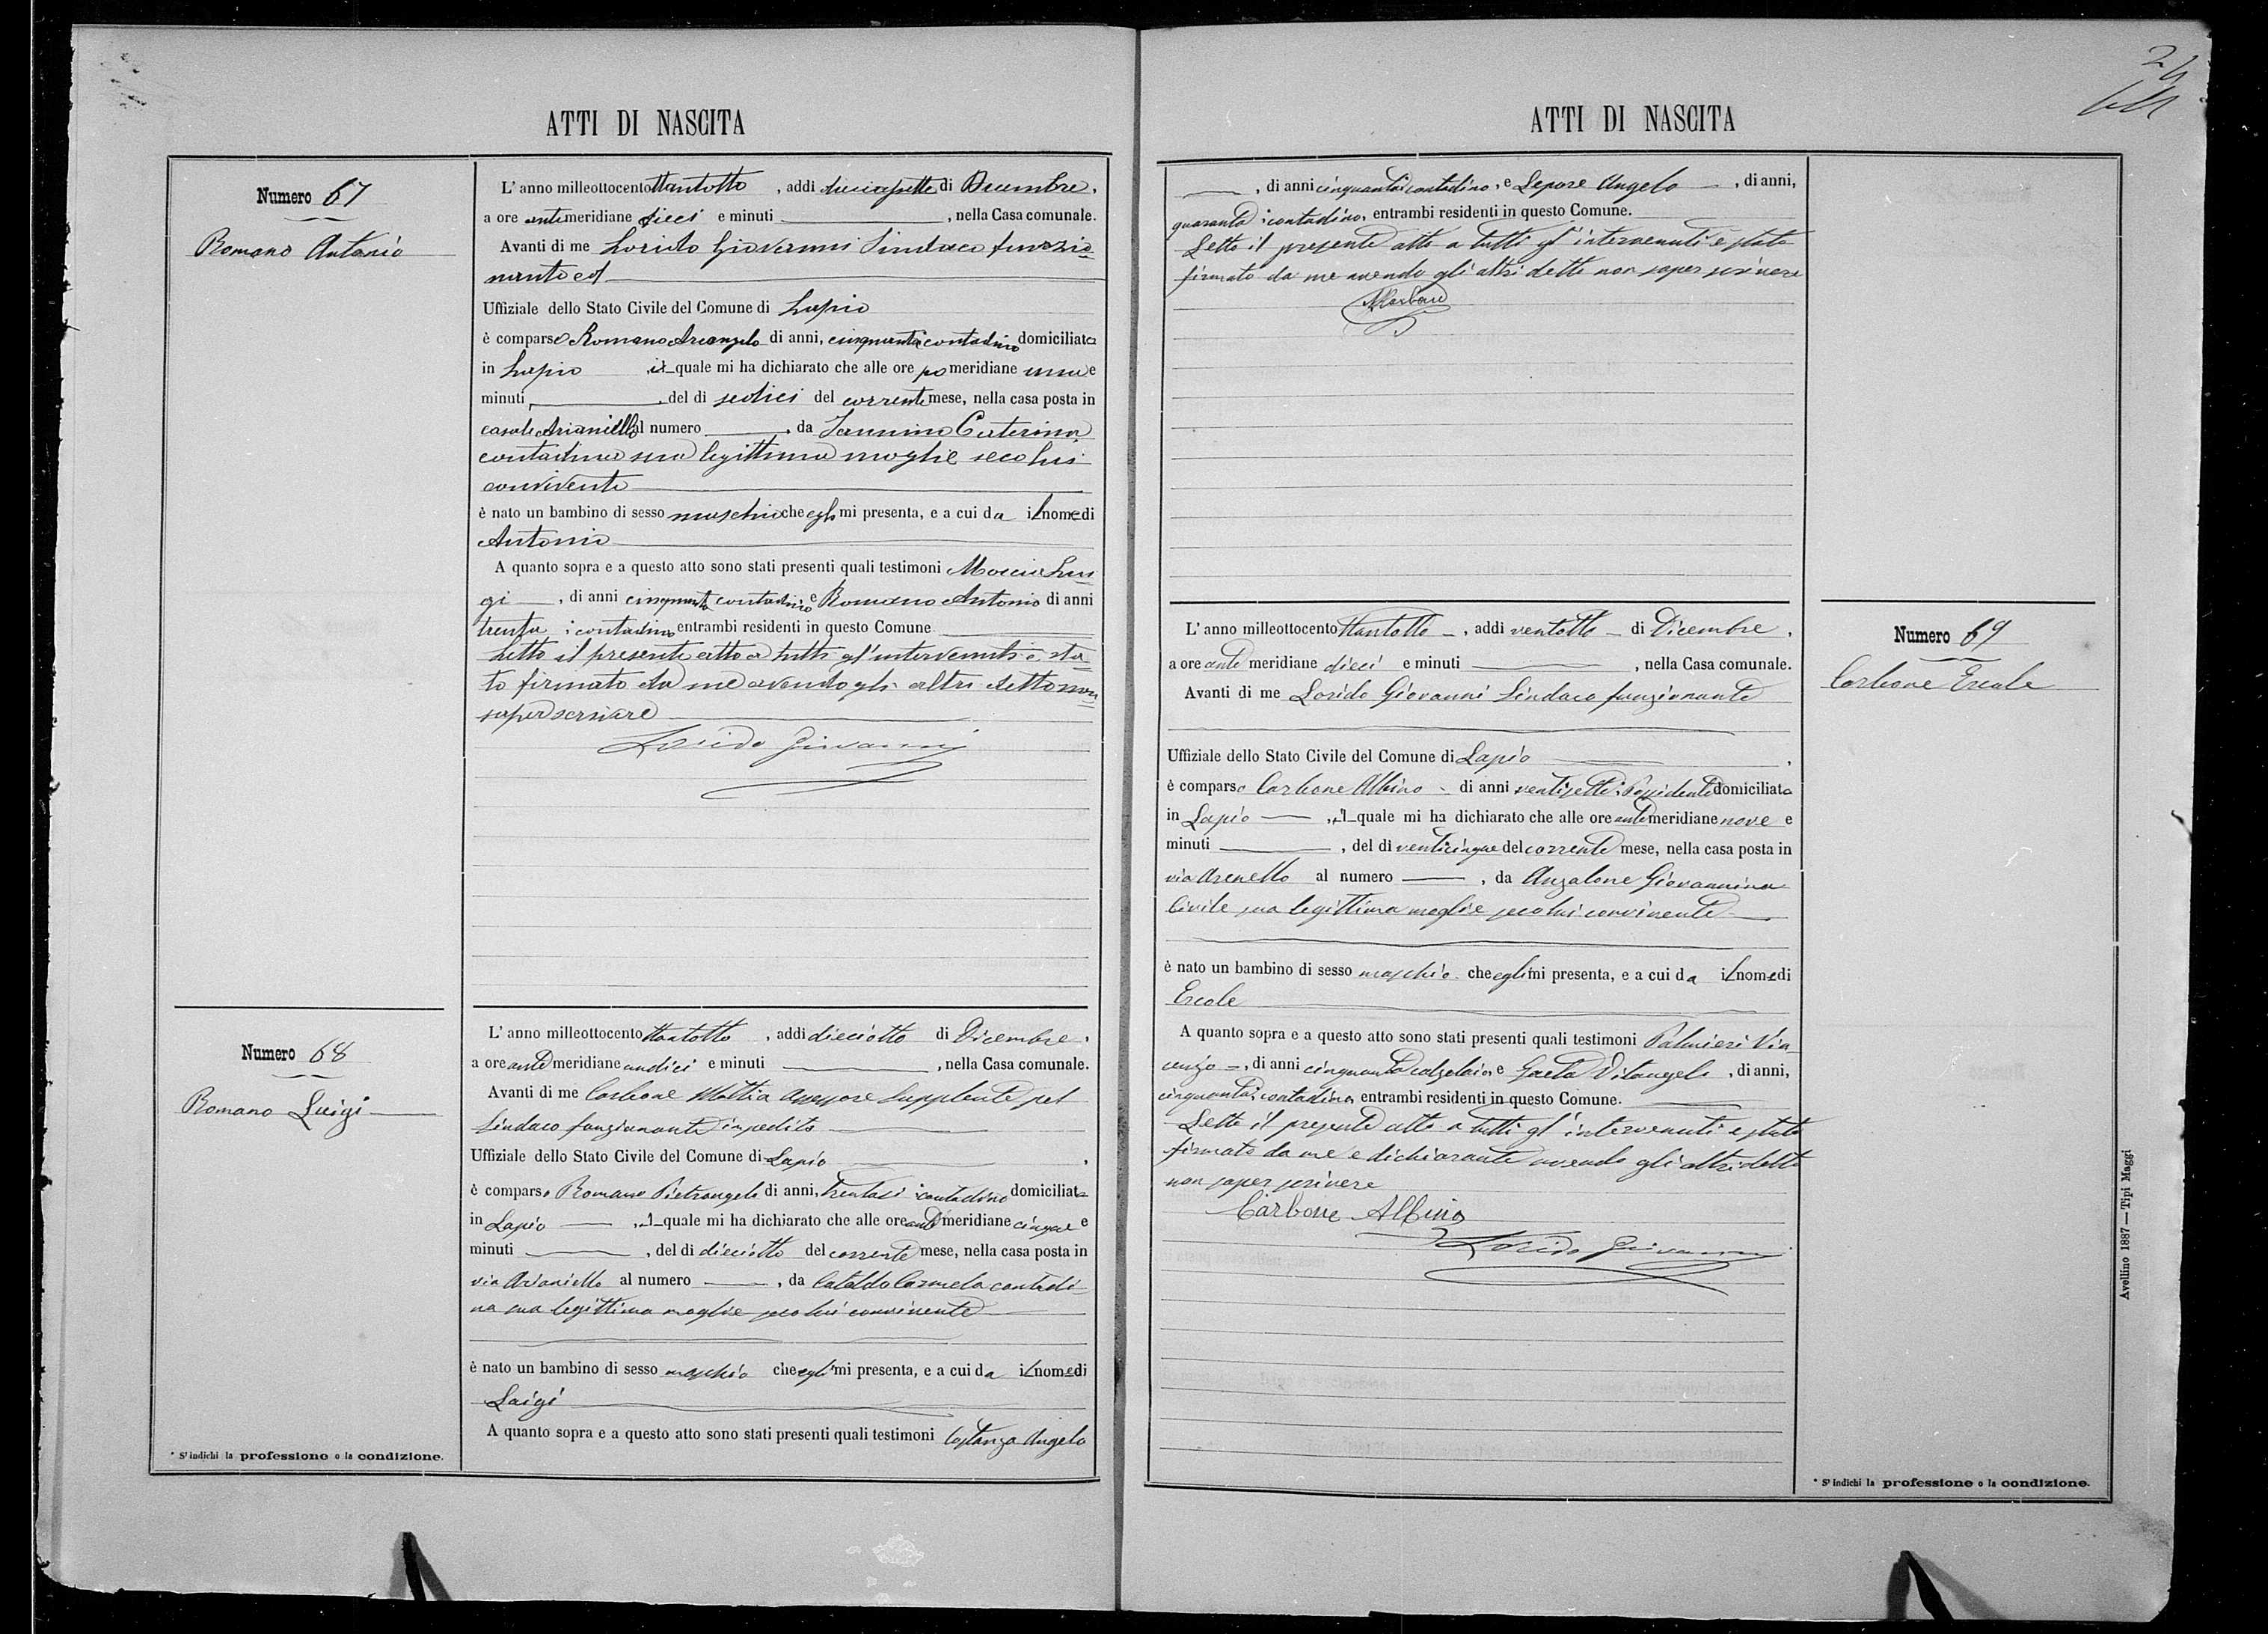 ATTI DI NASCITA
Numero 67
Romano Antonio
L' anno milleottocentottantotto, addi diciasette di Dicembre,
a ore antimeridiane dieci e minuti, nella Casa comunale.
Avanti di me Lorido Giovanni Sindaco funzio-
nante ed
Uffiziale dello Stato Civile del Comune di Lapio
è comparso Romano Arcangelo di anni, cinquanta contadino domiciliato
in Lapio, il quale mi ha dichiarato che alle ore pomeridiane una e
minuti, del di sedici del corrente mese, nella casa posta in
casale Arianiello al numero, da Iannino Caterina
contadina sua legittima moglie seco lui
convivente
è nato un bambino di sesso maschio che egli mi presenta, e a cui da il nome di
Antonio
A quanto sopra e a questo atto sono stati presenti quali testimoni Moccia Lui
gi, di anni cinquanta contadino e Romano Antonio di anni
trenta, contadino entrambi residenti in questo Comune
Letto il presente atto a tutti gl'intervenuti è sta-
to firmato da me avendo gli altri detto non
saper scrivere
Lorido Giovanni
Numero 68
Romano Luigi
L' anno milleottocentottantotto, addi dieciotto di Dicembre,
a ore antemeridiane undici e minuti, nella Casa comunale.
Avanti di me Carbone Mattia Assessore Supplente pel
Sindaco funzionante impedito
Uffiziale dello Stato Civile del Comune di Lapio,
è comparso Romano Pietrangelo di anni, trentasei contadino domiciliato
in Lapio, il quale mi ha dichiarato che alle ore antemeridiane cinque e
minuti, del di dieciotto del corrente mese, nella casa posta in
via Arianiello al numero, da Cataldo Carmela contadi-
na sua legittima moglie seco lui convivente
è nato un bambino di sesso maschio che egli mi presenta, e a cui da il nome di
Luigi
A quanto sopra e a questo atto sono stati presenti quali testimoni Costanza Angelo
* S' indichi la professione o la condizione.
24
ATTI DI NASCITA
, di anni cinquanta contadino, e Lepore Angelo, di anni,
quaranta, contadino, entrambi residenti in questo Comune.
Letto il presente atto a tutti gl'intervenuti è stato
firmato da me avendo gli altri detto non saper scrivere
MCarbone
Numero 69
Carbone Ercole
L' anno milleottocentottantotto, addi ventotto di Dicembre,
a ore antemeridiane dieci e minuti, nella Casa comunale.
Avanti di me Lorido Giovanni Sindaco funzionante
Uffiziale dello Stato Civile del Comune di Lapio,
è comparso Carbone Albino di anni ventisette, Possidente domiciliato
in Lapio, il quale mi ha dichiarato che alle ore antemeridiane nove e
minuti, del di venticinque del corrente mese, nella casa posta in
via Arenello al numero, da Anzalone Giovannina
Civile sua legittima moglie seco lui convivente
è nato un bambino di sesso maschio che egli mi presenta, e a cui da il nome di
Ercole
A quanto sopra e a questo atto sono stati presenti quali testimoni Palmieri Vin-
cenzo, di anni cinquanta calzolaio, e Gaeta Vitangelo, di anni,
cinquanta, contadino, entrambi residenti in questo Comune.
Letto il presente atto a tutti gl'intervenuti è stato
firmato da me e dichiarante avendo gli altri detto
non saper scrivere
Carbone Albino
Lorido Giovanni
Avellino 1887 — Tipi Maggi
* S' indichi la professione o la condizione.